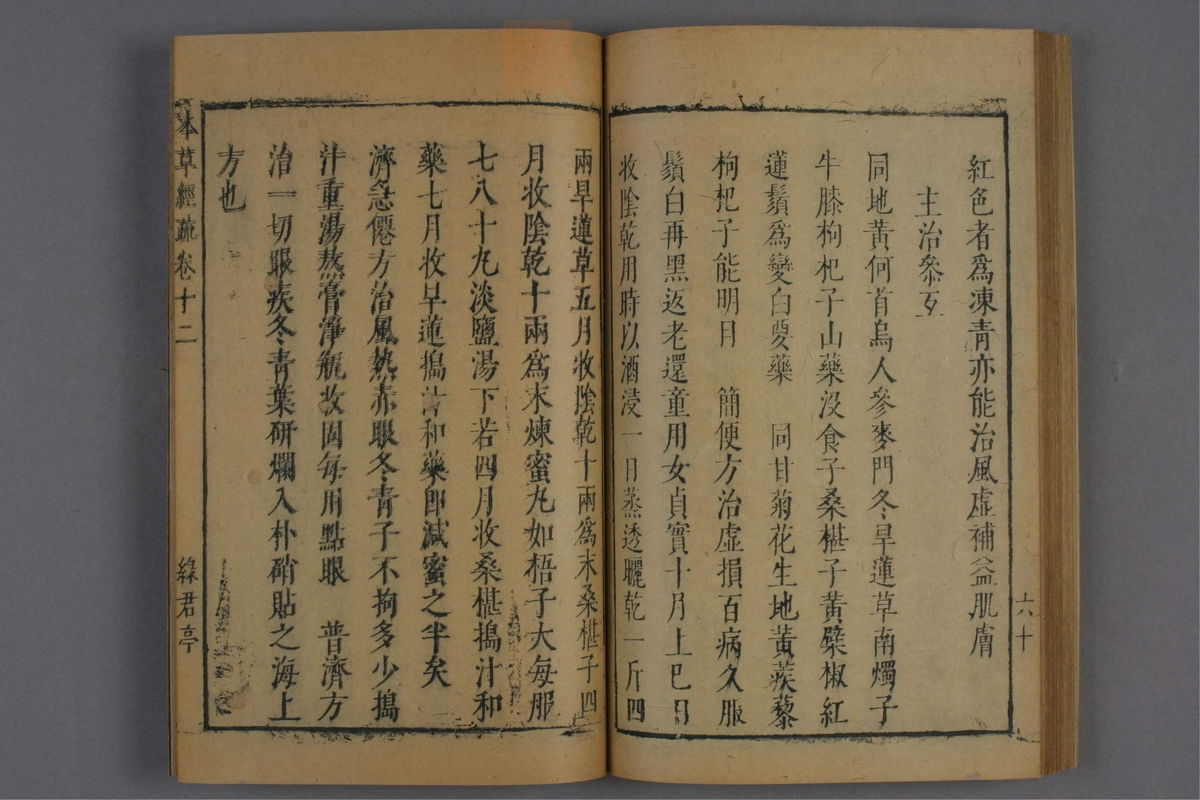 紅色者爲凍青亦能治風虛補益肌膚
主治參互
同地黃何首烏人參麥門冬旱蓮草南燭子
牛膝枸杞子山藥沒食子桑椹子黃檗椒紅
蓮鬚爲變白要藥 同甘菊花生地黃蒺藜
枸杞子能明目 簡便方治虛損百病久服
鬚白再黑返老還童用女貞實十月上巳日
收陰乾用時以酒浸一日蒸透曬乾一斤四
六十
兩旱蓮草五月收陰乾十兩爲末桑椹子四
月收陰乾十兩爲末煉蜜丸如梧子大每服
七八十丸淡鹽湯下若四月收桑椹搗汁和
藥七月收旱蓮搗汁和藥即減蜜之半矣
濟急僊方治風熱赤眼冬青子不拘多少搗
汁重湯熬膏淨瓶收固每用點眼 普濟方
治一切眼疾冬青葉研爛入朴硝貼之海上
方也
本草經疏 卷十二 綠君亭